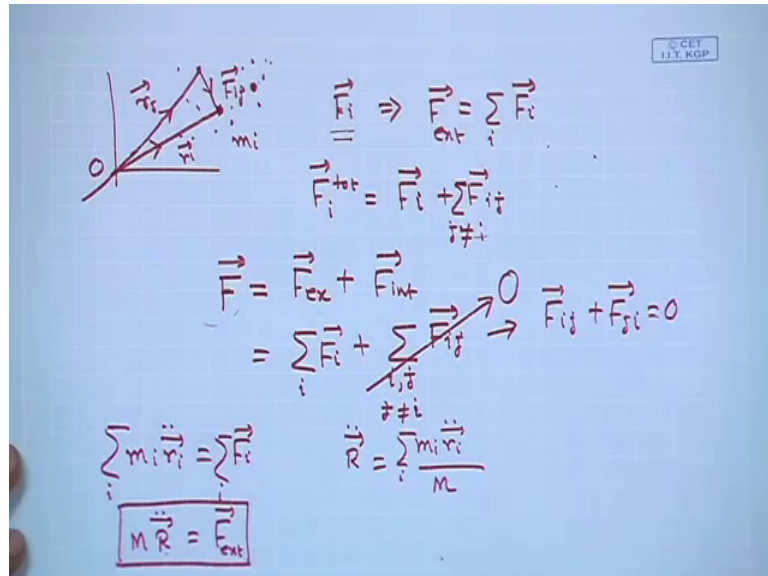 © CET
I.I.T. KGP
O
r⃗_j
F⃗_ij
r⃗_i
m_i
F⃗_i ⇒ F⃗_ext = ∑_i F⃗_i
F⃗_i^tot = F⃗_i + ∑_{j≠i} F⃗_ij
F⃗ = F⃗_ex + F⃗_int
= ∑_i F⃗_i + ∑_{i,j j≠i} F⃗_ij → 0 → F⃗_ij + F⃗_ji = 0
∑_i m_i r⃗̈_i = ∑_i F⃗_i
R⃗̈ = ∑_i m_i r⃗̈_i / M
M R⃗̈ = F⃗_ext